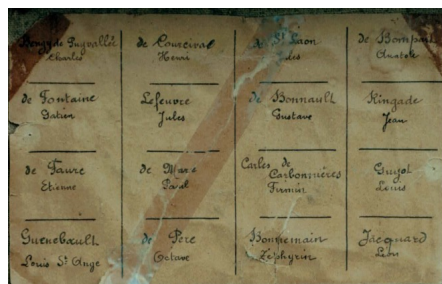 Bengy de Puyvallée
Charles
de Courcival
Henri
de St Laon
Jules
de Bompart
Anatole
de Fontaine
Datien
Lefeuvre
Jules
de Bonnault
Gustave
Ringade
Jean
de Faure
Etienne
de Mare
Paval
Carles de
Carbonnières
Firmin
Guyot
Louis
Guenebault
Louis St Ange
de Père
Octave
Bonnemain
Zéphyrin
Jacquard
Léon